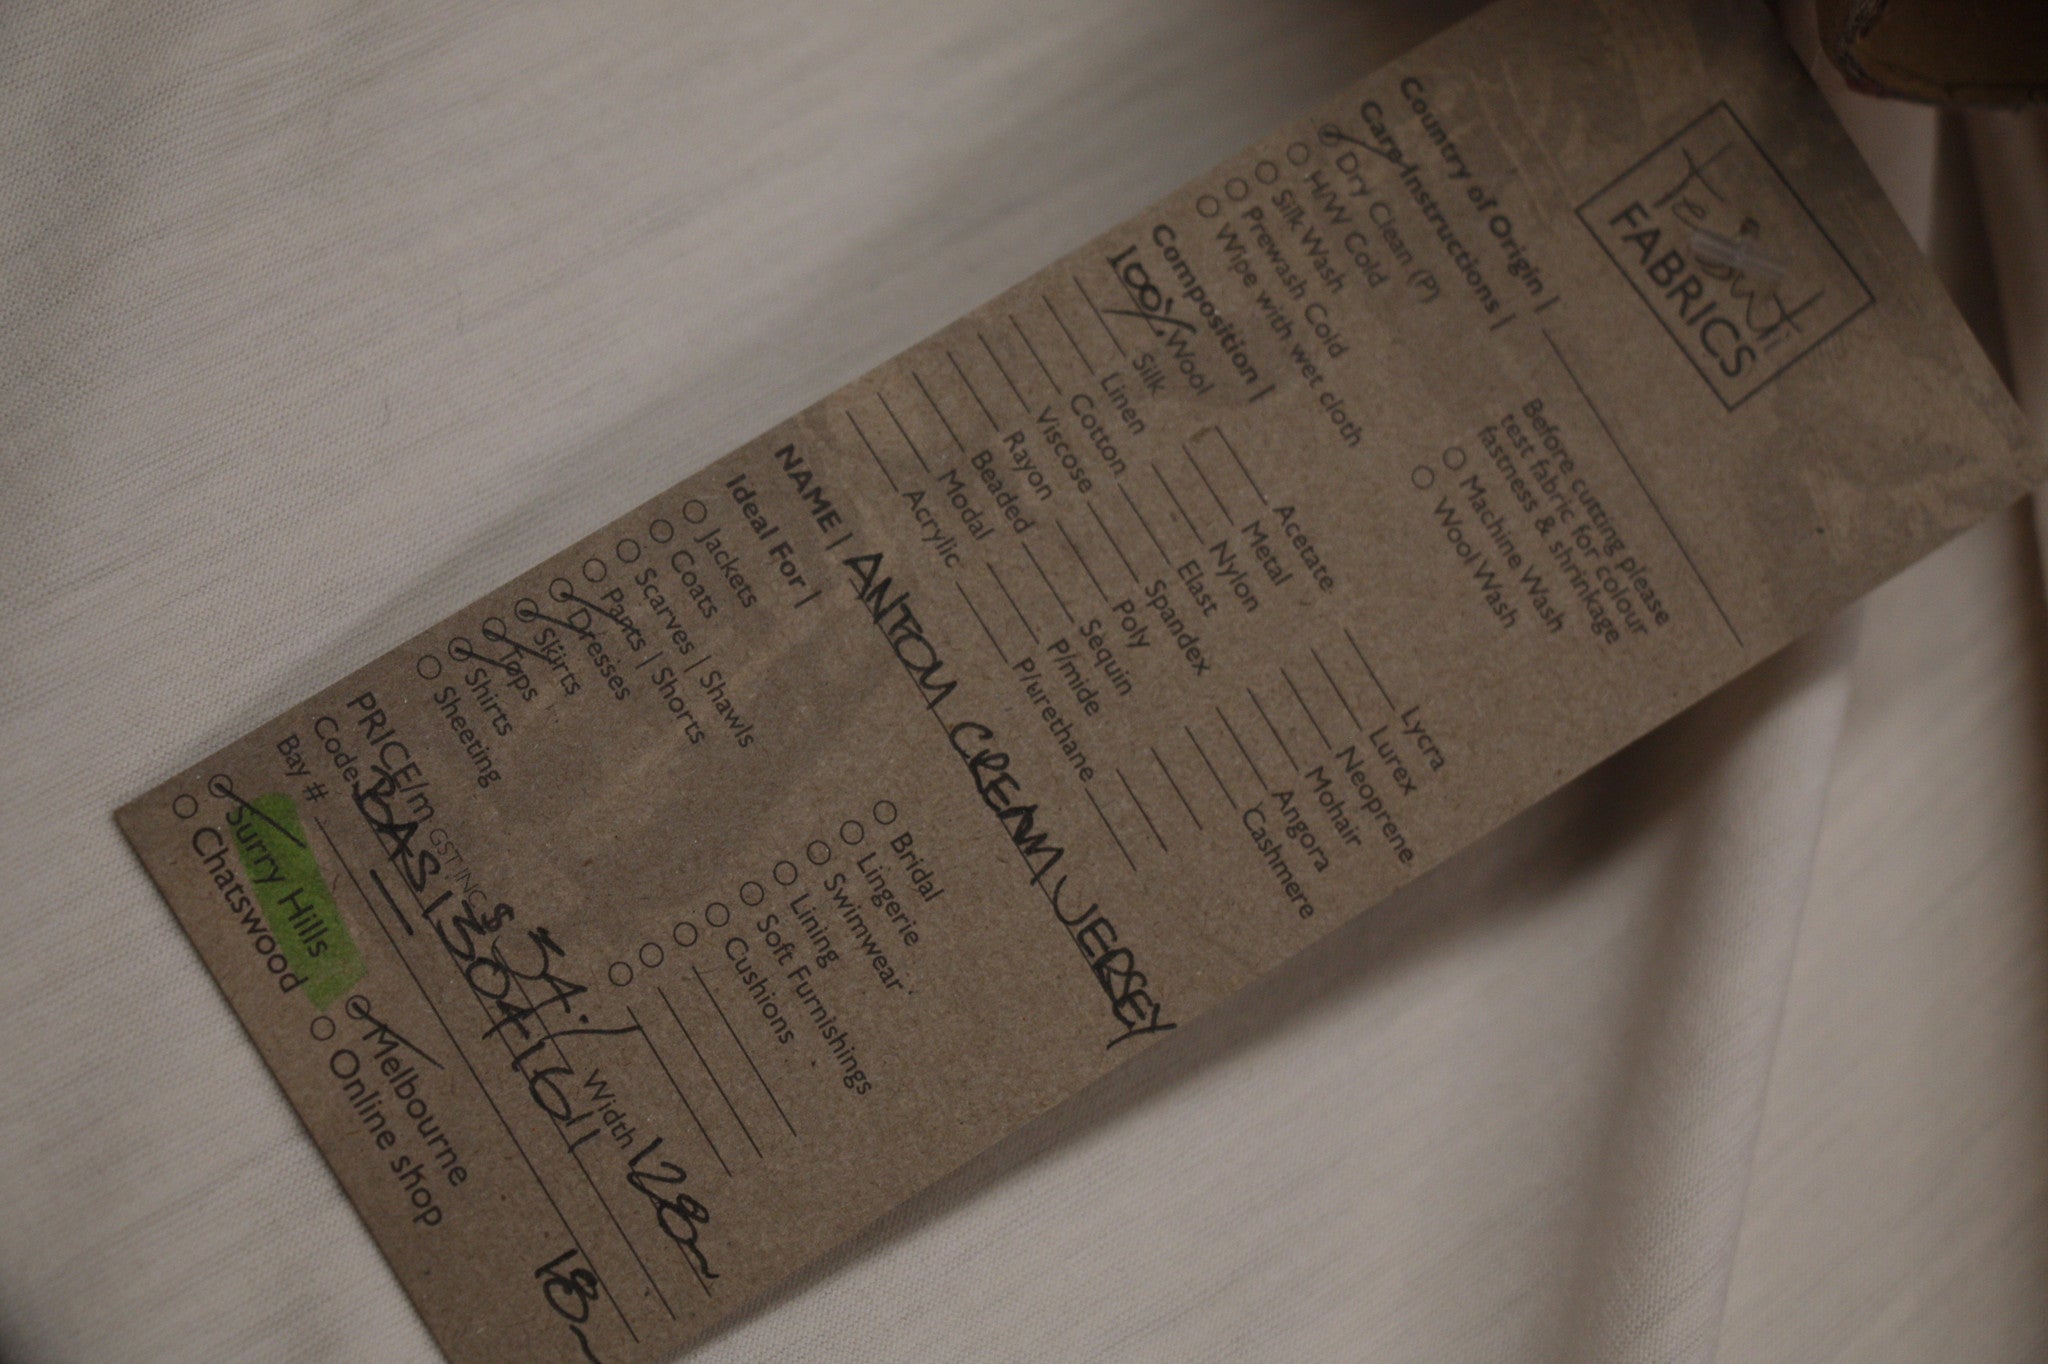 Tessuti
FABRICS
Country of Origin |
Care Instructions |
Before cutting please
test fabric for colour
fastness & shrinkage
Dry Clean (P)
H/W Cold
Machine Wash
Silk Wash
Wool Wash
Prewash Cold
Wipe with wet cloth
Composition |
100% Wool Acetate Lycra
Silk Metal Lurex
Linen Nylon Neoprene
Cotton Elast Mohair
Viscose Spandex Angora
Rayon Poly Cashmere
Beaded Sequin
Modal P/mide
Acrylic P/urethane
NAME | ANTOM CREAM JERSEY
Ideal For |
Jackets Bridal
Coats Lingerie
Scarves | Shawls Swimwear
Pants | Shorts Lining
Dresses Soft Furnishings
Skirts Cushions
Tops
Shirts
Sheeting
PRICE/m GST INC $ 54.- Width 128
Code
Bay # 18
Surry Hills Melbourne
Chatswood Online shop